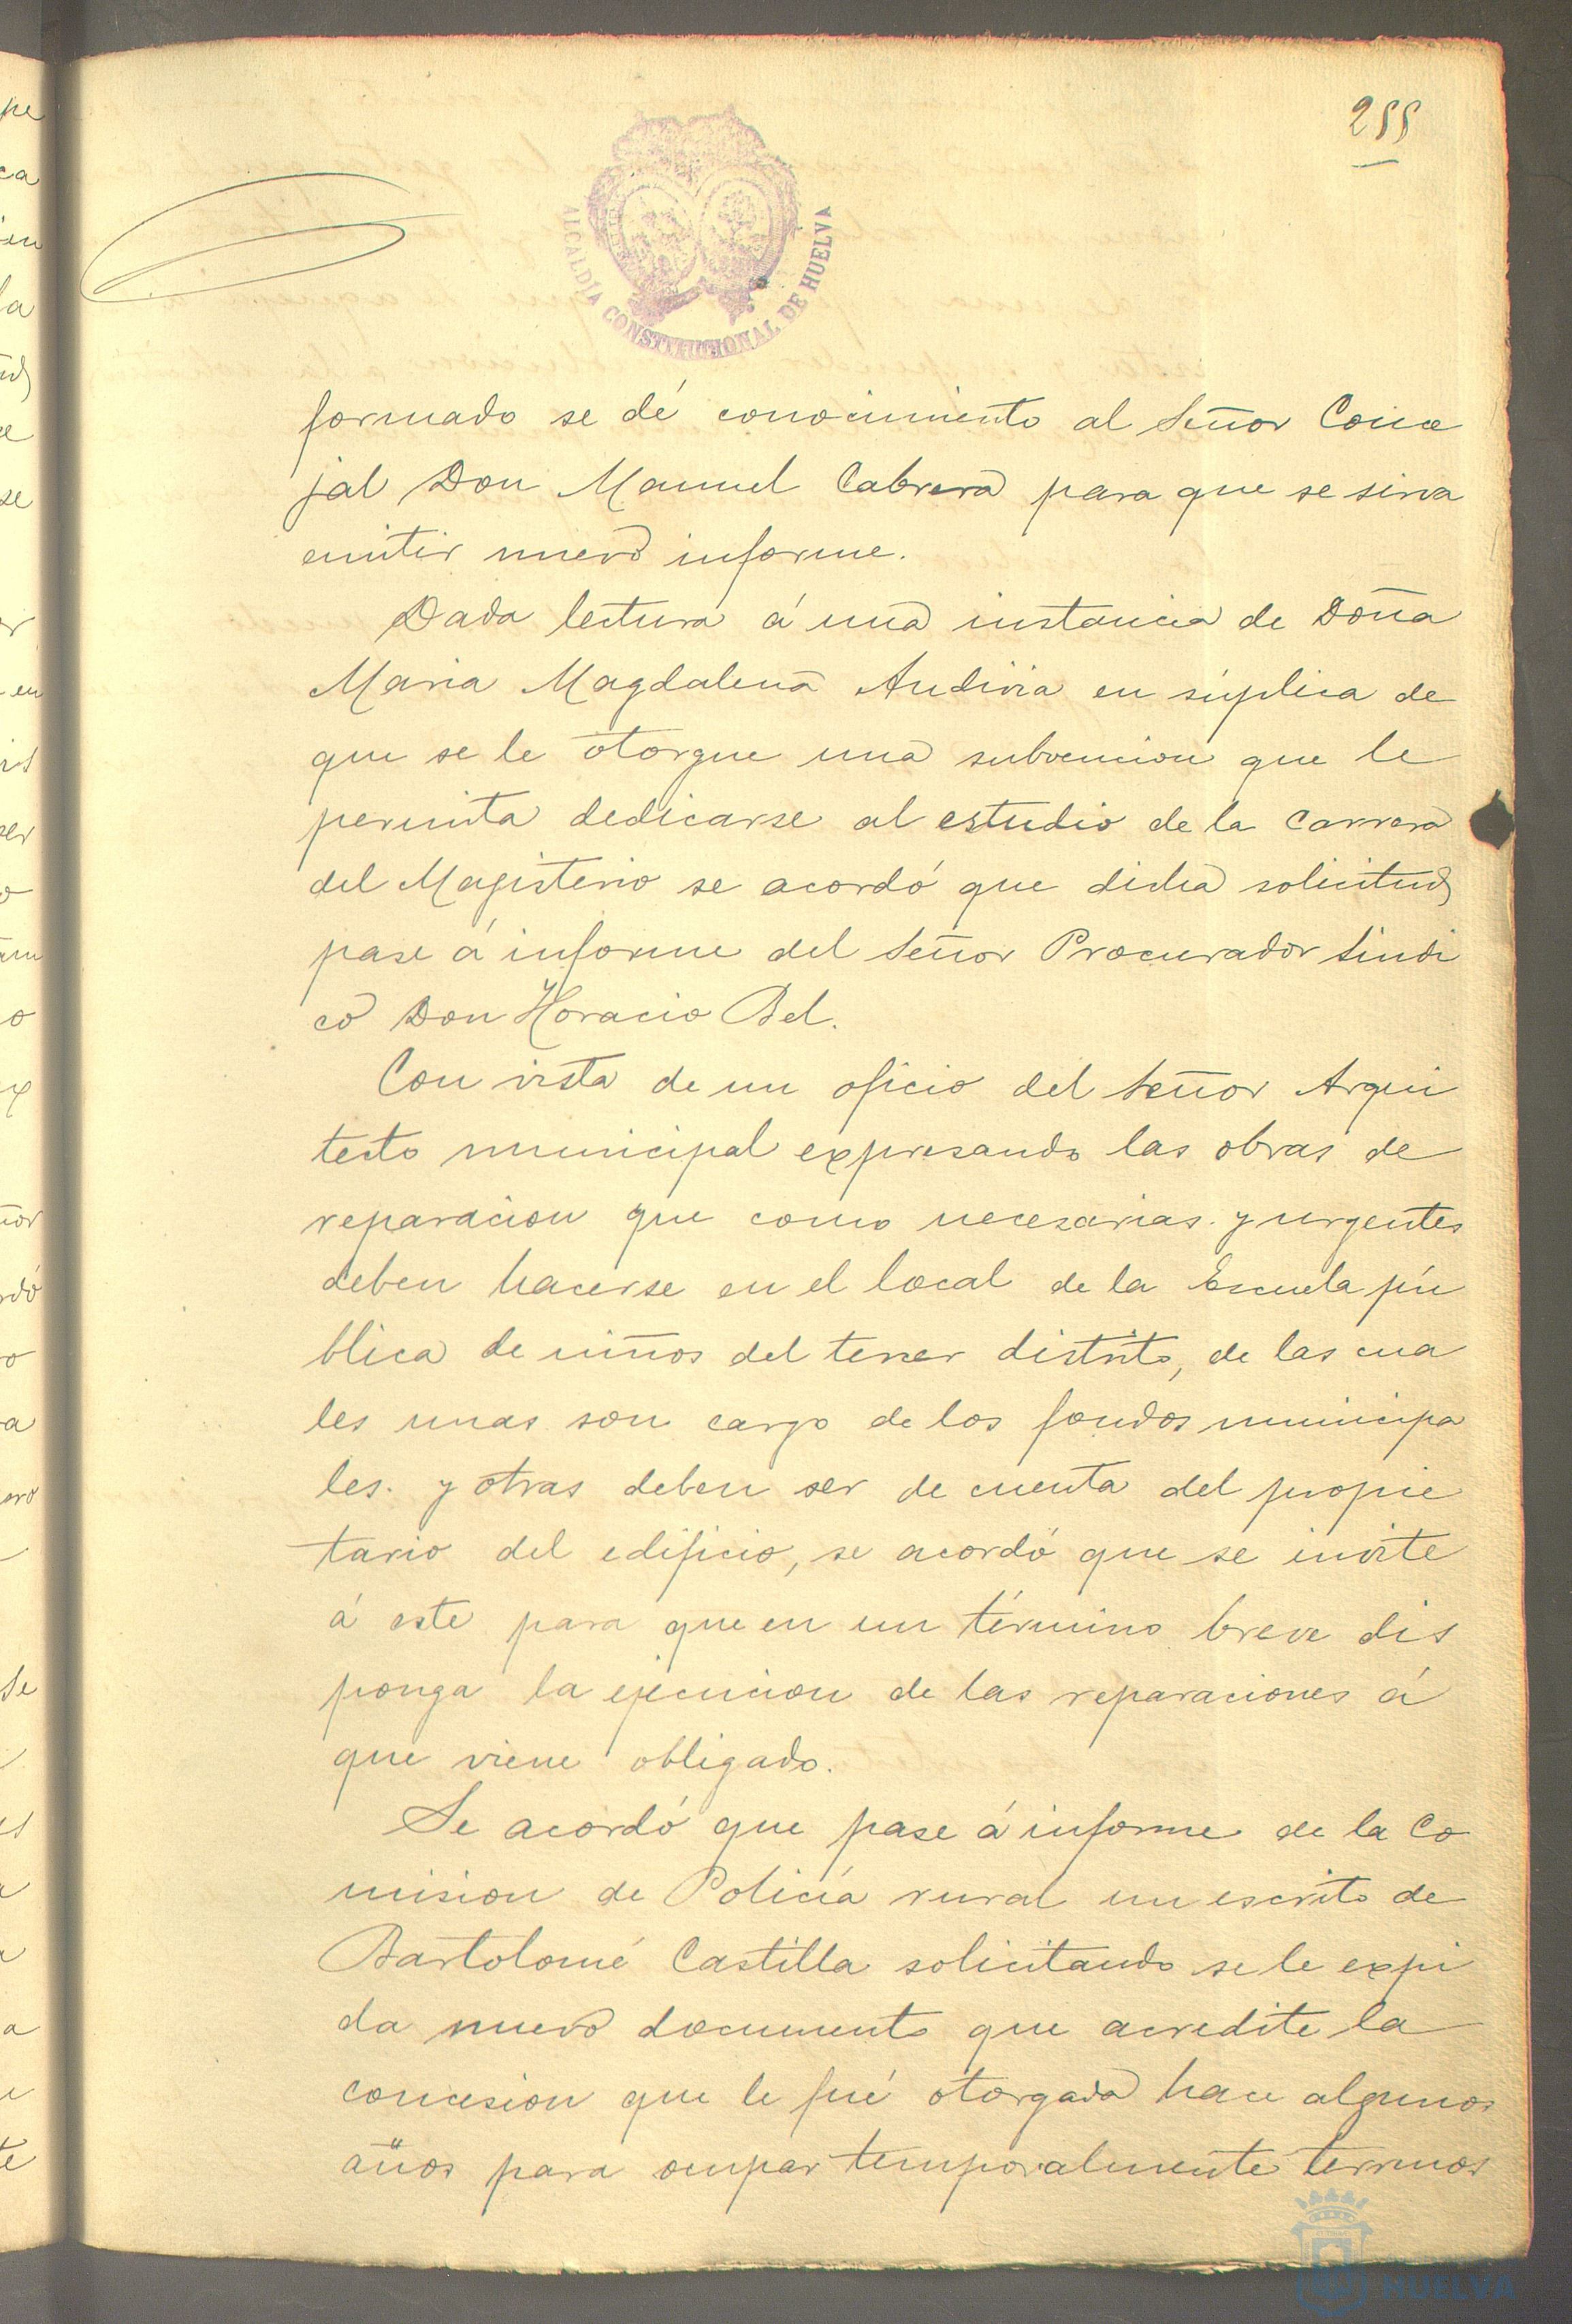 255
ALCALDÍA CONSTITUCIONAL DE HUELVA
formado se dé conocimiento al Señor Conce
jal Don Manuel Cabrera para que se sirva
emitir nuevo informe.
Dada lectura á una instancia de Doña
Maria Magdalena Andivia en súplica de
que se le otorgue una subvencion que le
permita dedicarse al estudio de la Carrera
del Magisterio se acordó que dicha solicitud
pase á informe del Señor Procurador Sindi
co Don Horacio Bel.
Con vista de un oficio del Señor Arqui
tecto municipal expresando las obras de
reparacion que como necesarias y urgentes
deben hacerse en el local de la Escuela pú
blica de niños del tercer distrito, de las cua
les unas son cargo de los fondos municipa
les y otras deben ser de cuenta del propie
tario del edificio, se acordó que se invite
á este para que en un término breve dis
ponga la ejecucion de las reparaciones á
que viene obligado.
Se acordó que pase á informe de la Co
mision de Policía rural un escrito de
Bartolomé Castilla solicitando se le expi
da nuevo documento que acredite la
concesion que le fué otorgada hace algunos
años para ocupar temporalmente terrenos
HUELVA